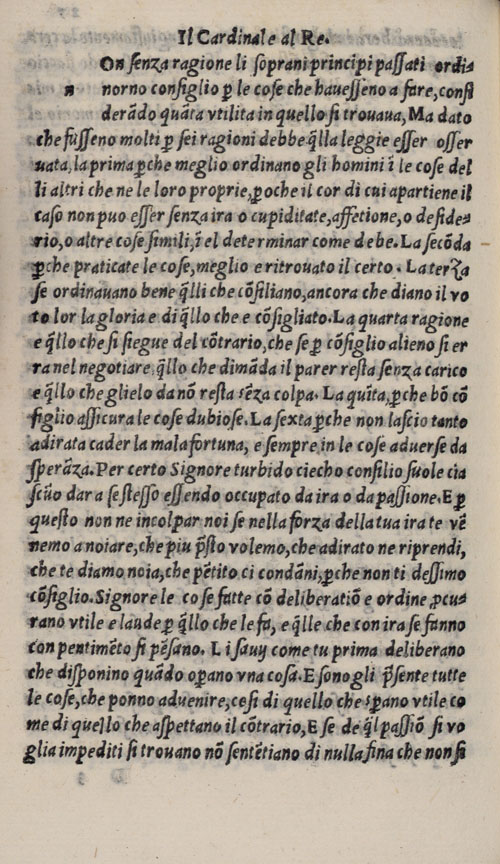 Il Cardinale al Re.
On senza ragione li soprani principi passati ordi=
n norno consiglio ꝑ le cose che hauesseno a fare, consi
derãdo quãta vtilita in quello si trouaua, Ma dato
che fusseno molti ꝑ sei ragioni debbe q̃lla leggie esser osser
uata, la prima ꝑche meglio ordinano gli homini ĩ le cose del
li altri che ne le loro proprie, ꝑoche il cor di cui apartiene il
caso non puo esser senza ira o cupiditate, affetione, o deside=
rio, o altre cose simili, ĩ el determinar come debe. La secõda
ꝑche praticate le cose, meglio e ritrouato il certo. La terza
se ordinauano bene q̃lli che cõsiliano, ancora che diano il vo
to lor la gloria e di q̃llo che e cõsigliato. La quarta ragione
e q̃llo che si siegue del cõtrario, che se ꝑ cõsiglio alieno si er
ra nel negotiare q̃llo che dimãda il parer resta senza carico
e q̃llo che glielo da nõ resta sẽza colpa. La quĩta, ꝑche bõ cõ
siglio assicura le cose dubiose. La sexta ꝑche non lascio tanto
adirata cader la mala fortuna, e sempre in le cose aduerse da
sperãza. Per certo Signore turbido ciecho consilio suole cia
scũo dar a se stesso essendo occupato da ira o da passione. E ꝑ
questo non ne incolpar noi se nella forza della tua ira te vẽ
nemo a noiare, che piu p̃sto volemo, che adirato ne riprendi,
che te diamo noia, che pẽtito ci condãni, ꝑche non ti dessimo
cõsiglio. Signore le cose fatte cõ deliberatiõ e ordine ꝓcu=
rano vtile e laude ꝑ q̃llo che le fa, e q̃lle che con ira se fanno
con pentimẽto si pẽsano. Li sauij come tu prima deliberano
che disponino quãdo oꝑano vna cosa. E sono gli p̃sente tutte
le cose, che ponno aduenire, cosi di quello che sperano vtile co
me di quello che aspettano il cõtrario, E se de q̃l passiõ si vo
glia impediti si trouano nõ sentẽtiano di nulla fina che non si